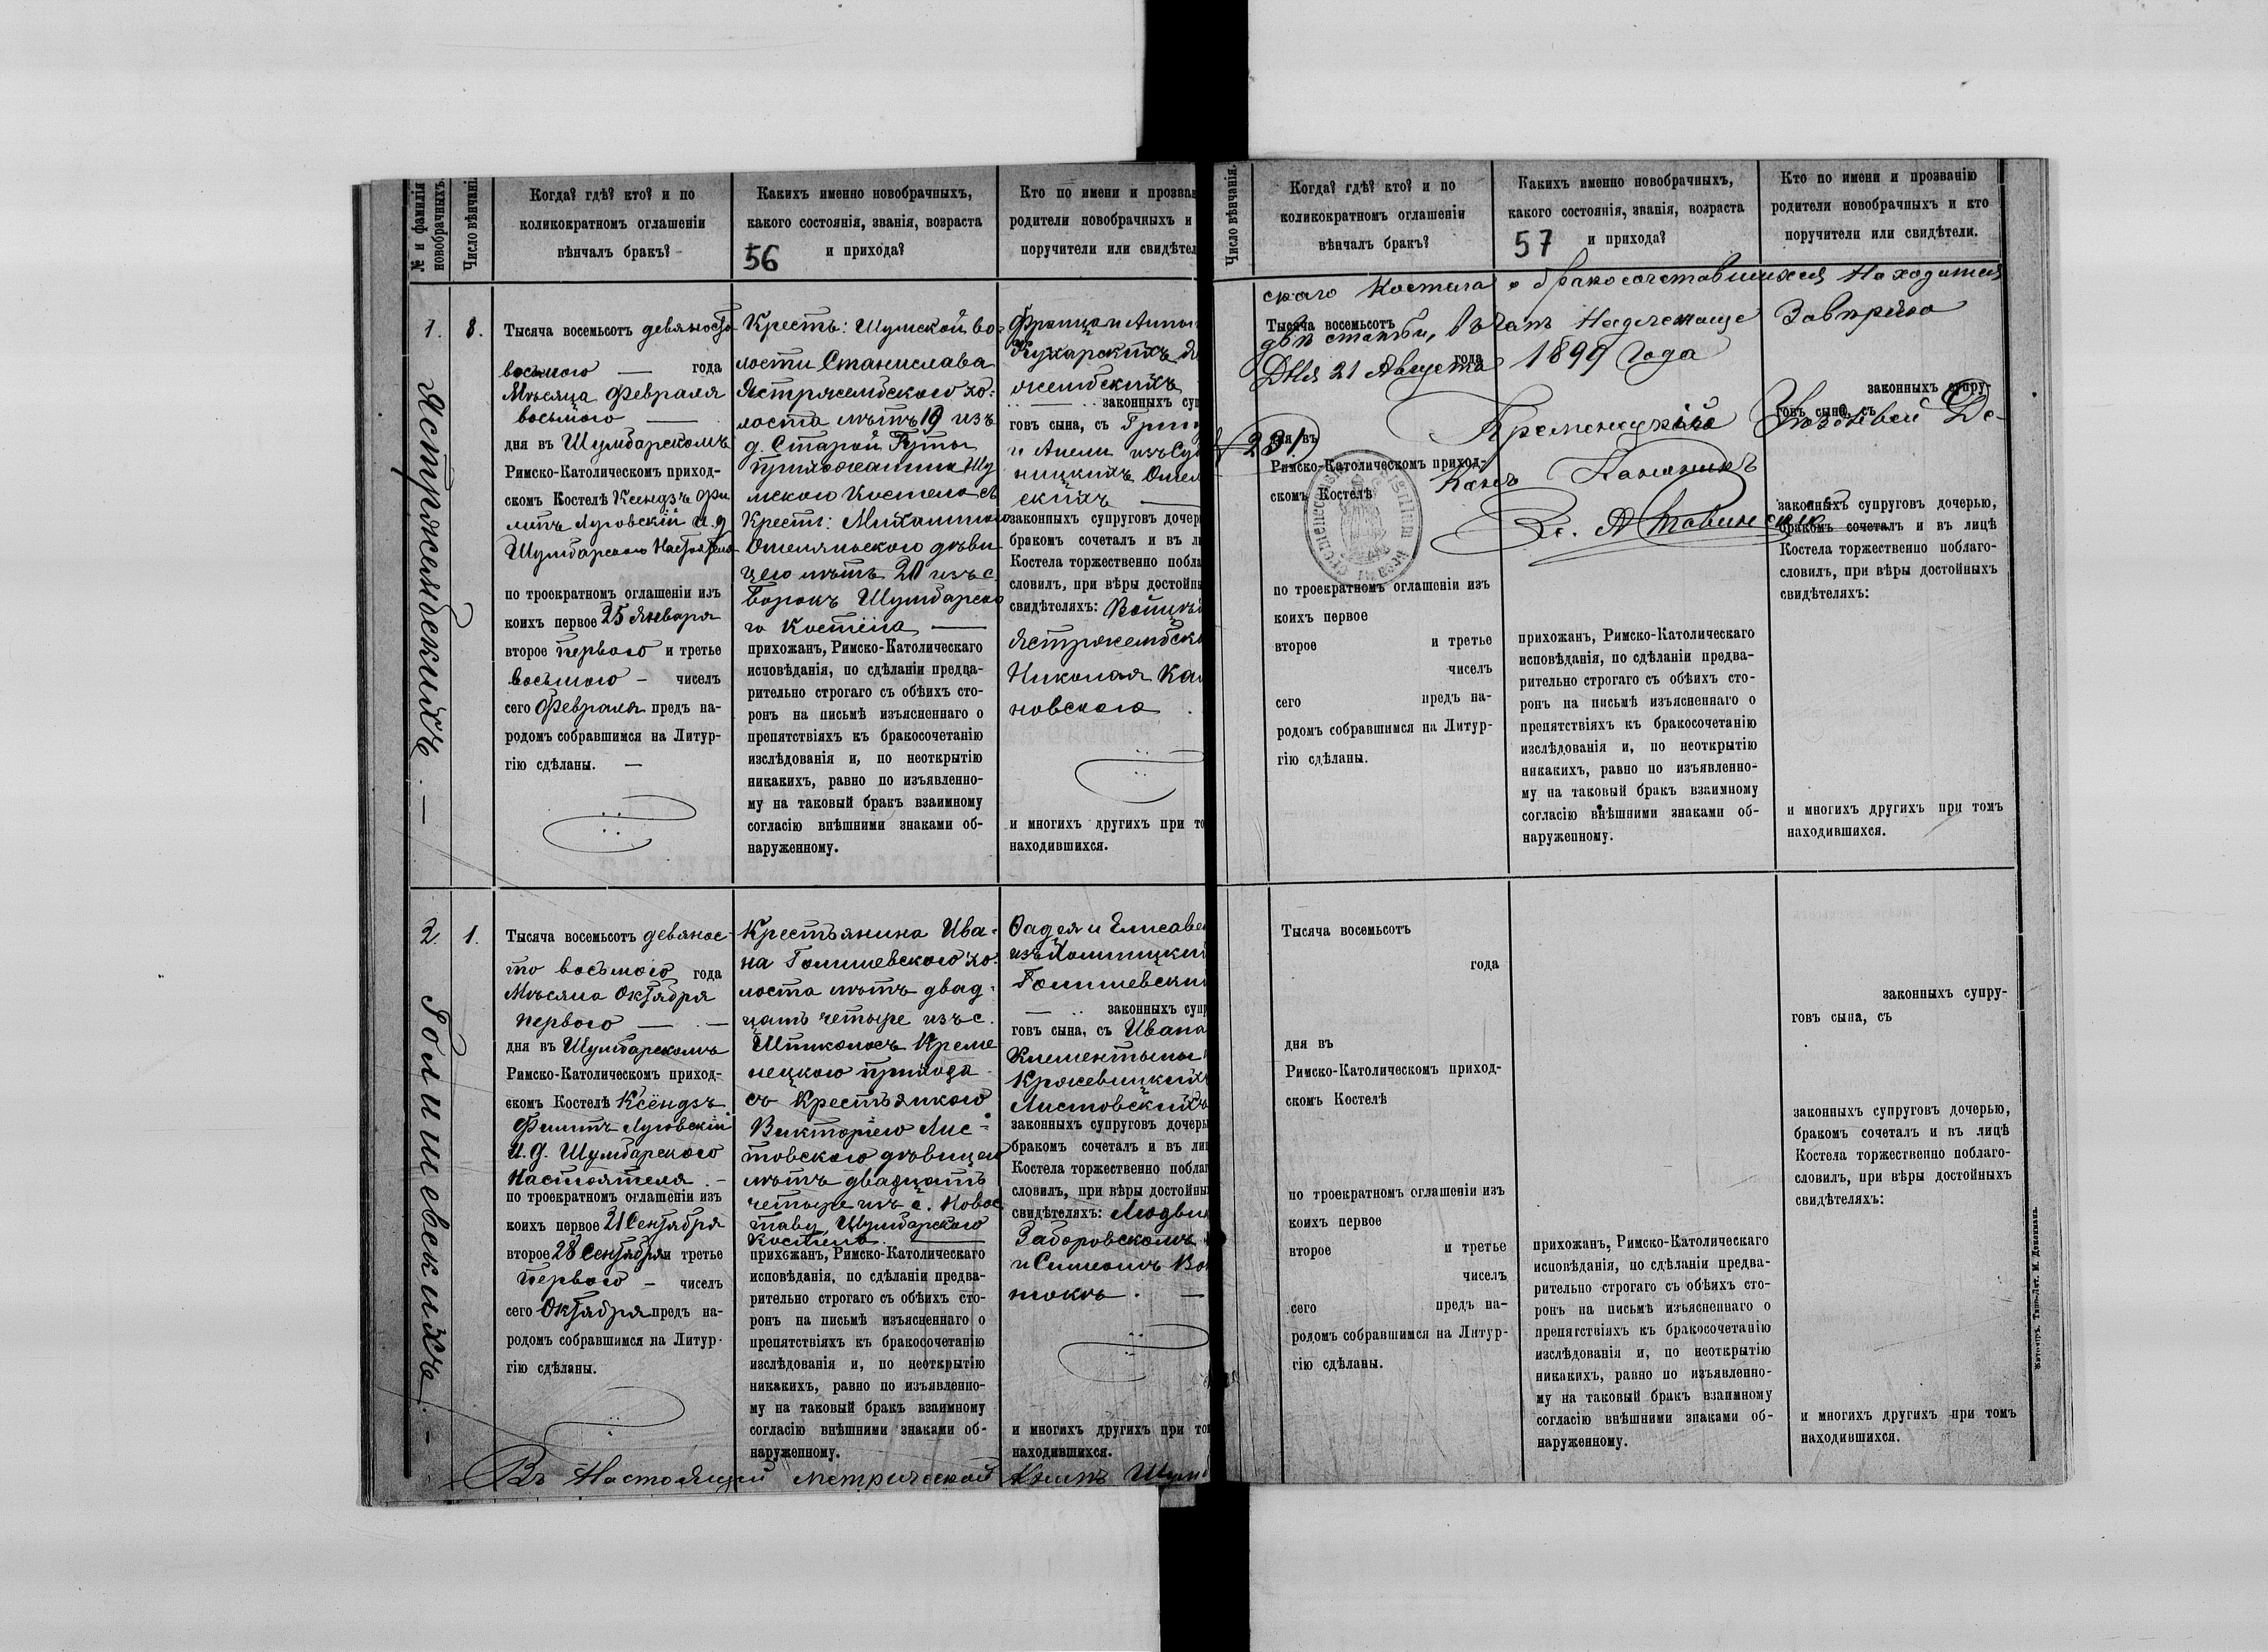 № и фамилія
новобрачныхъ.
Число вѣнчанія
Когда? гдѣ? кто? и по
коликократномъ оглашеніи
вѣнчалъ бракъ?
Какихъ именно новобрачныхъ,
какого состоянія, званія, возраста
и прихода?
56
Кто по имени и прозва
родители новобрачныхъ и
поручители или свидѣте
1.
Ястржембскихъ. —
8.
Тысяча восемьсотъ девяносто
восьмого — года
Мѣсяца Февраля
восьмого —
дня въ Шумбарскомъ
Римско-Католическомъ приход-
скомъ Костелѣ Ксендзъ Фи
липъ Луговскій и. д.
Шумбарскаго Настоятеля
по троекратномъ оглашеніи изъ
коихъ первое 25 Января
второе перваго и третье
восьмого — чиселъ
сего Февраля предъ на-
родомъ собравшимся на Литур-
гію сдѣланы. —
Крест: Шумской во-
лости Станислава
Ястржембского хо-
лоста лѣтъ 19 изъ
д. Старой Гуты
прихожанина Шу
мского Костела съ
Крест:
дѣви
цею лѣтъ 20 изъ с.
Борокъ Шумбарска
го Костела —
прихожанъ, Римско-Католическаго
исповѣданія, по сдѣланіи предва-
рительно строгаго съ обѣихъ сто-
ронъ на письмѣ изъясненнаго о
препятствіяхъ къ бракосочетанію
изслѣдованія и, по неоткрытію
никакихъ, равно по изъявленно-
му на таковый бракъ взаимному
согласію внѣшними знаками об-
наруженному.
Франца и Анны
Кухарскихъ Я
жембскихъ
— законныхъ суп
говъ сына, съ
и Анели изъ
ницкихъ
скихъ —
законныхъ супруговъ дочер
бракомъ сочеталъ и въ ли
Костела торжественно побла
словилъ, при вѣры достойн
свидѣтеляхъ:
Ястржембск
Николая Ка
новского
и многихъ другихъ при то
находившихся.
2.
Голишевскихъ. —
1.
Тысяча восемьсотъ девянос-
то восьмого года
Мѣсяца Октября
перваго — —
дня въ Шумбарскомъ
Римско-Католическомъ приход-
скомъ Костелѣ Ксёндзъ
Филипъ Луговскій
и. д. Шумбарского
Настоятеля. —
по троекратномъ оглашеніи изъ
коихъ первое 21 Сентября
второе 28 Сентября и третье
перваго — чиселъ
сего Октября предъ на-
родомъ собравшимся на Литур-
гію сдѣланы.
Крестьянина Ива-
на Голишевского хо-
лоста лѣтъ двад-
цать четыре изъ с.
Креме
нецкого прихода
съ Крестьянкою
Викторіею Лис-
товскою дѣвицею
лѣтъ двадцать
четыре изъ с. Новос
тавц Шумбарского
Костела. —
прихожанъ, Римско-Католическаго
исповѣданія, по сдѣланіи предва-
рительно строгаго съ обѣихъ сто-
ронъ на письмѣ изъясненнаго о
препятствіяхъ къ бракосочетанію
изслѣдованія и, по неоткрытію
никакихъ, равно по изъявленно-
му на таковый бракъ взаимному
согласію внѣшними знаками об-
наруженному.
Фадея и Елисаве
изъ
Голишевски
— законныхъ супр
говъ сына, съ Ивана
Клементыны
Кржевицкихъ
Листовскихъ
законныхъ супруговъ дочерь
бракомъ сочеталъ и въ ли
Костела торжественно поблаг
словилъ, при вѣры достойны
свидѣтеляхъ: Людви
Заборовскомъ
и Симеонъ Во
токъ. —
и многихъ другихъ при то
находившихся.
Въ Настоящей метрической Книгѣ Шумб
Число вѣнчанія.
Когда? гдѣ? кто? и по
коликократномъ оглашеніи
вѣнчалъ бракъ?
Какихъ именно новобрачныхъ,
какого состоянія, званія, возраста
и прихода?
57
Кто по имени и прозванію
родители новобрачныхъ и кто
поручители или свидѣтели.
скаго Костела о бракосочетавшихся находится
двѣ статьи, въ чемъ надлежаще завѣряю
Дня 21 Августа 1899 года
Кременецкій Де-
канъ Каноникъ
231
Тысяча восемьсотъ
года
дня въ
Римско-Католическомъ приход-
скомъ Костелѣ
по троекратномъ оглашеніи изъ
коихъ первое
второе и третье
чиселъ
сего предъ на-
родомъ собравшимся на Литур-
гію сдѣланы.
прихожанъ, Римско-Католическаго
исповѣданія, по сдѣланіи предва-
рительно строгаго съ обѣихъ сто-
ронъ на письмѣ изъясненнаго о
препятствіяхъ къ бракосочетанію
изслѣдованія и, по неоткрытію
никакихъ, равно по изъявленно-
му на таковый бракъ взаимному
согласію внѣшними знаками об-
наруженному.
законныхъ супру-
говъ сына, съ
законныхъ супруговъ дочерью,
бракомъ сочеталъ и въ лицѣ
Костела торжественно поблаго-
словилъ, при вѣры достойныхъ
свидѣтеляхъ:
и многихъ другихъ при томъ
находившихся.
Тысяча восемьсотъ
года
дня въ
Римско-Католическомъ приход-
скомъ Костелѣ
по троекратномъ оглашеніи изъ
коихъ первое
второе и третье
чиселъ
сего предъ на-
родомъ собравшимся на Литур-
гію сдѣланы.
прихожанъ, Римско-Католическаго
исповѣданія, по сдѣланіи предва-
рительно строгаго съ обѣихъ сто-
ронъ на письмѣ изъясненнаго о
препятствіяхъ къ бракосочетанію
изслѣдованія и, по неоткрытію
никакихъ, равно по изъявленно-
му на таковый бракъ взаимному
согласію внѣшними знаками об-
наруженному.
законныхъ супру-
говъ сына, съ
законныхъ супруговъ дочерью,
бракомъ сочеталъ и въ лицѣ
Костела торжественно поблаго-
словилъ, при вѣры достойныхъ
свидѣтеляхъ:
и многихъ другихъ при томъ
находившихся.